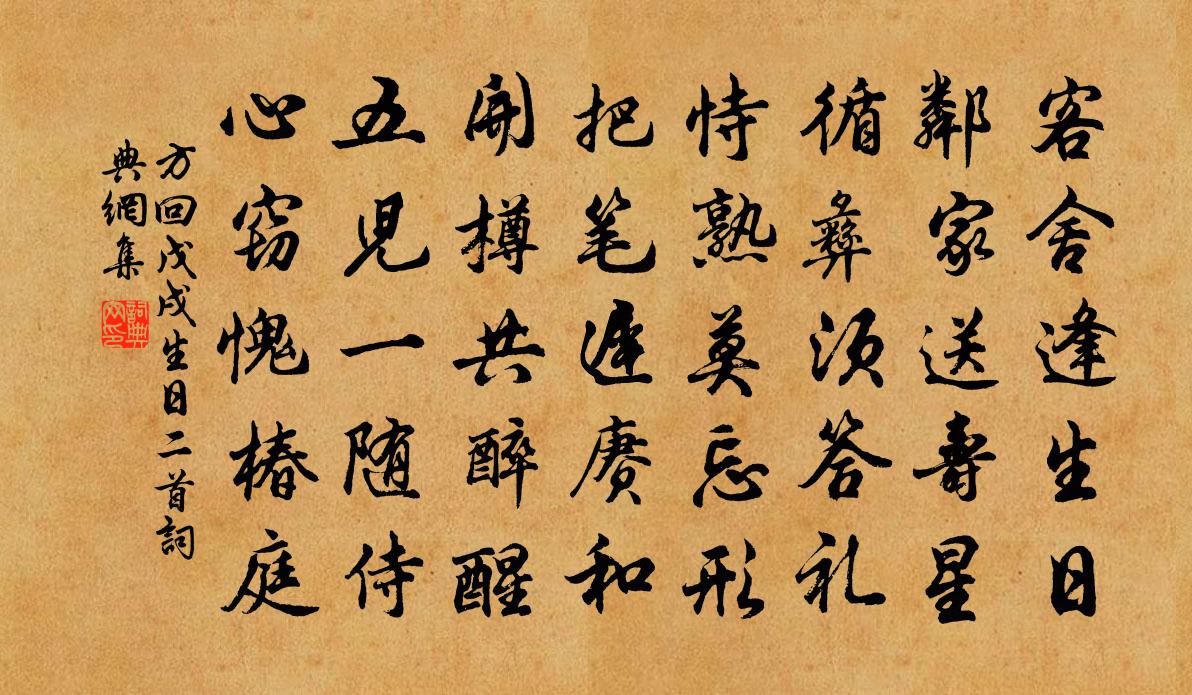 客舍逢生日
鄰家送壽星
循彝須答礼
恃熟莫忘形
把笔遲賡和
開樽共醉醒
五児一随侍
心窃愧椿庭
方回戊戌生日二首詞
典網集
詞典網印